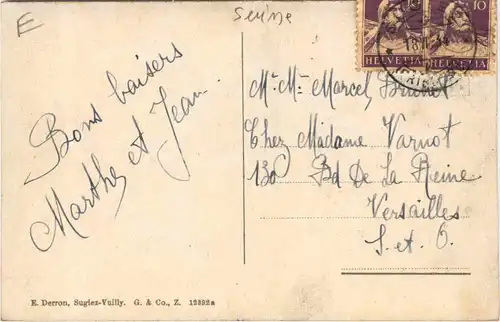 E
Suisse
10 10
HELVETIA HELVETIA
Bons baisers
Marthe et Jean.
Mr Me Marcel
Chez Madame Varnot
130 Bd De La Reine
Versailles
S. et. O.
E. Derron, Sugiez-Vuilly. G. & Co., Z. 12392a